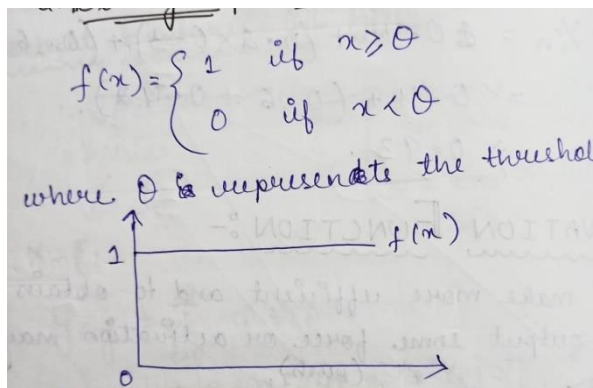 f(x) = { 1 if x ⩾ θ
0 if x < θ
where θ represendts the threshol
f(x)
1
0